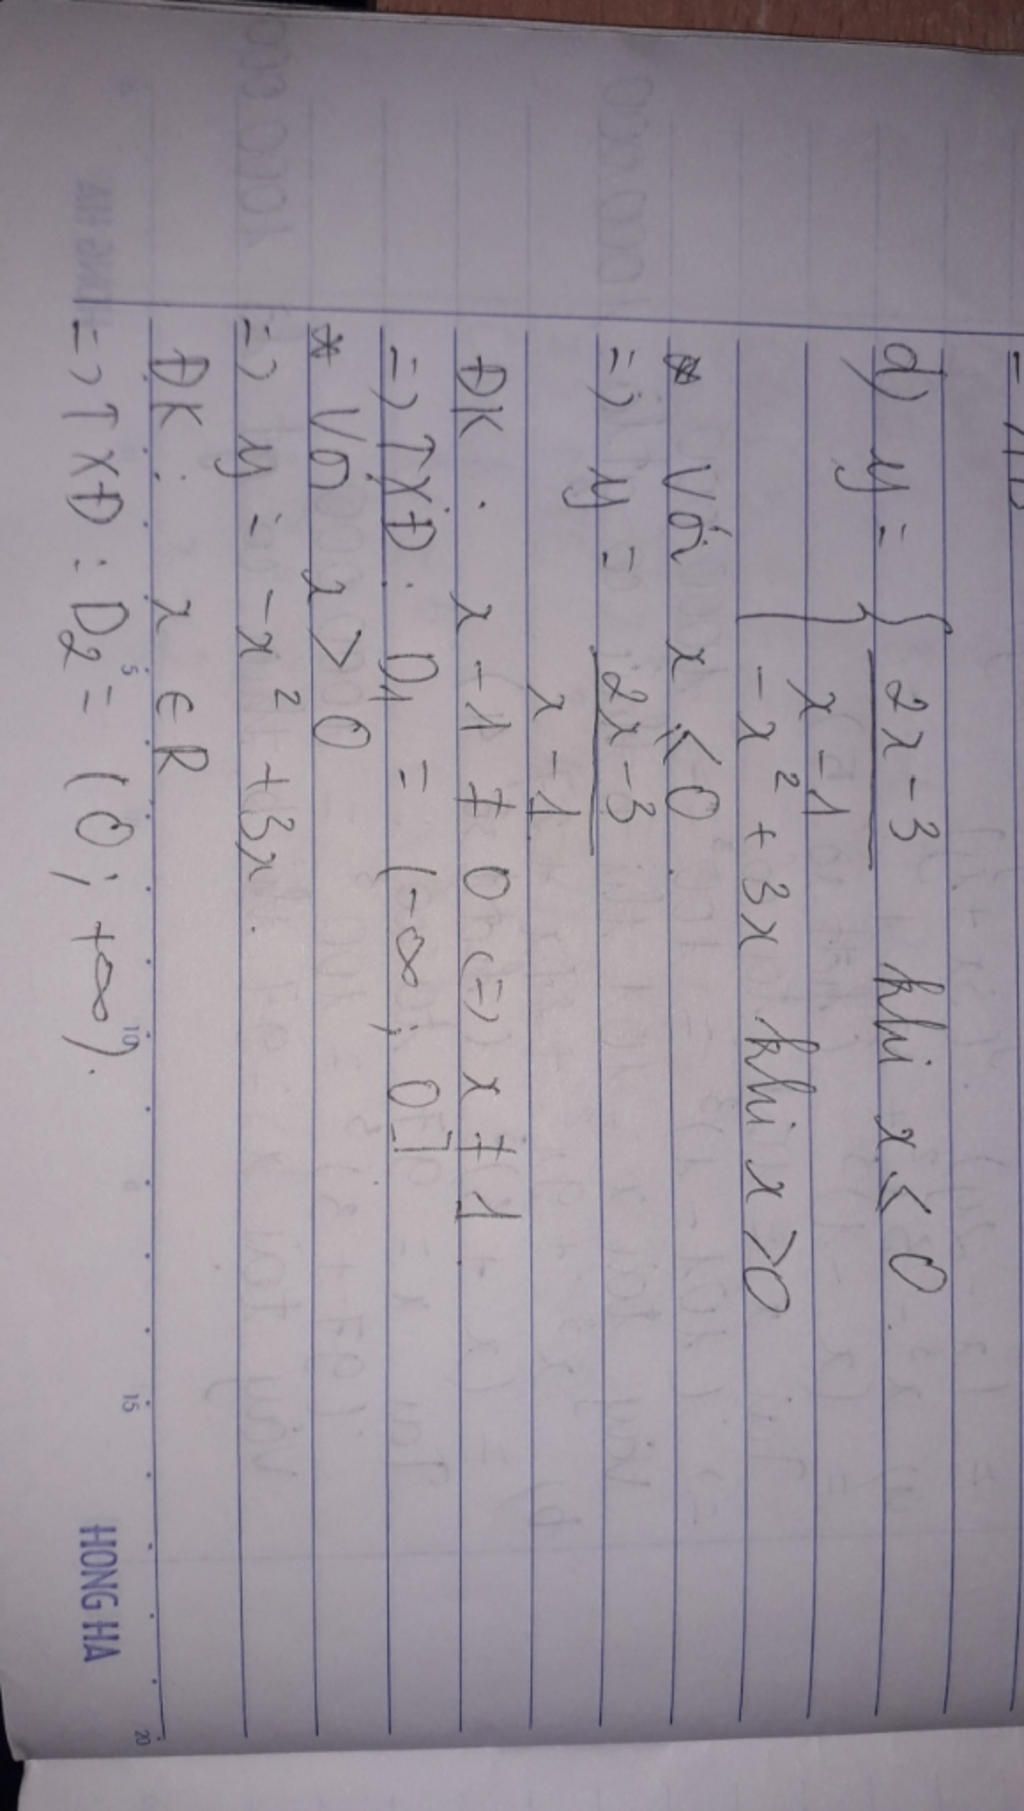 d) y = { 2x - 3 khi x ≤ 0
x - 1
- x² + 3x khi x > 0
* Với x ≤ 0
=> y = 2x - 3
x - 1
ĐK: x - 1 ≠ 0 <=> x ≠ 1
=> TXĐ: D₁ = (-∞; 0]
* Với x > 0
=> y = - x² + 3x.
ĐK: x ∈ R
5 10 15 20
=> TXĐ: D₂ = (0; +∞).
HONG HA